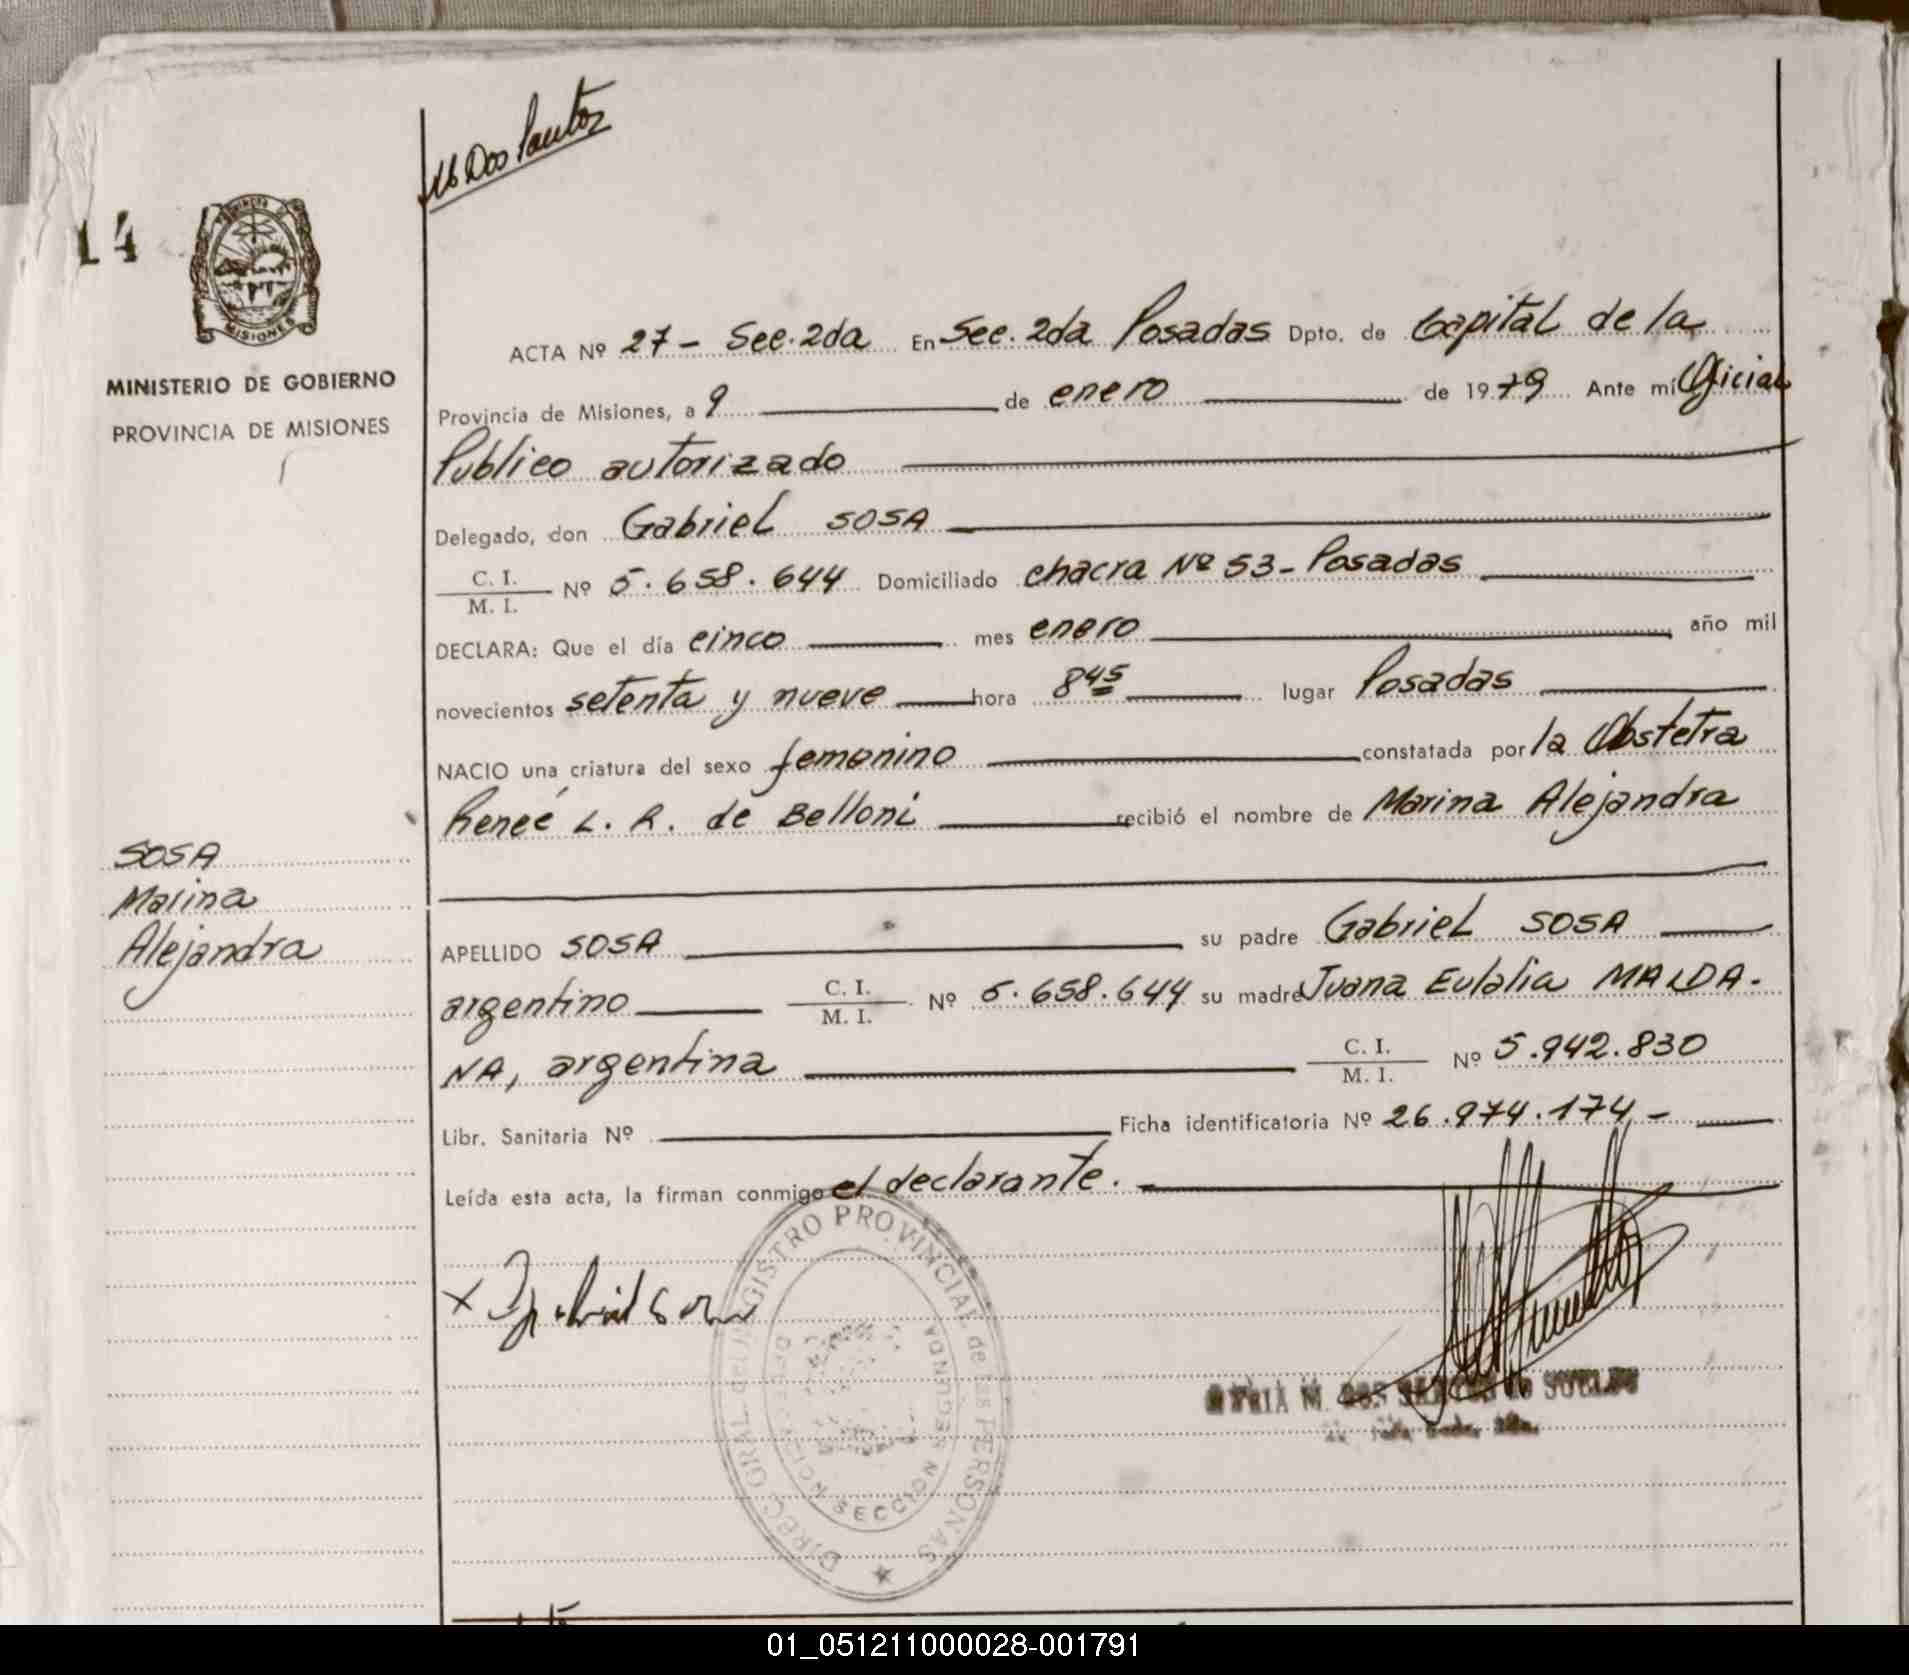 M Dos Santos
14
PROVINCIA DE
MISIONES
MINISTERIO DE GOBIERNO
PROVINCIA DE MISIONES
ACTA Nº 27 - Sec. 2da En Sec. 2da Posadas Dpto. de Capital de la
Provincia de Misiones, a 9 de enero de 1979 Ante mí Oficial
Publico autorizado
Delegado, don Gabriel SOSA
C. I.
M. I. Nº 5.658.644 Domiciliado chacra Nº 53 - Posadas
DECLARA: Que el día cinco mes enero año mil
novecientos setenta y nueve hora 8 45 lugar Posadas
NACIO una criatura del sexo femenino constatada por la Obstetra
Reneé L. R. de Belloni recibió el nombre de Marina Alejandra
SOSA
Marina
Alejandra
APELLIDO SOSA su padre Gabriel SOSA
argentino C. I.
M. I. Nº 5.658.644 su madre Juana Eulalia MALDA-
NA, argentina C. I.
M. I. Nº 5.942.830
Libr. Sanitaria Nº Ficha identificatoria Nº 26.974.174 -
Leída esta acta, la firman conmigo el declarante.
x Gabriel Sosa
DIREC. GRAL. del REGISTRO PROVINCIAL de las PERSONAS
SECCION SEGUNDA
M. DOS SANTOS de
01_051211000028-001791